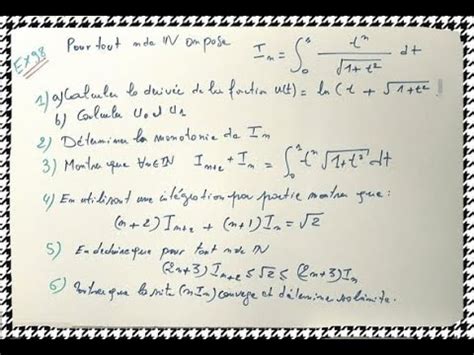 Ex98
Pour tout n de IN on pose I_n = ∫_0^1 t^n / √(1+t²) dt
1) a) Calculer la derivée de la fonction u(t) = ln(t + √1+t²
b) Calculer U0 et U1
2) Déterminer la monotonie de I_n
3) Montrer que ∀n∈IN I_{n+2} + I_n = ∫_0^1 t^n √(1+t²) dt
4) En utilisant une intégration par partie montrer que :
(n+2) I_{n+2} + (n+1) I_n = √2
5) En deduire que pour tout n de IN
(2n+3) I_{n+2} ≤ √2 ≤ (2n+3) I_n
6) Montrer que la suite (n I_n) converge et détermine sa limite.